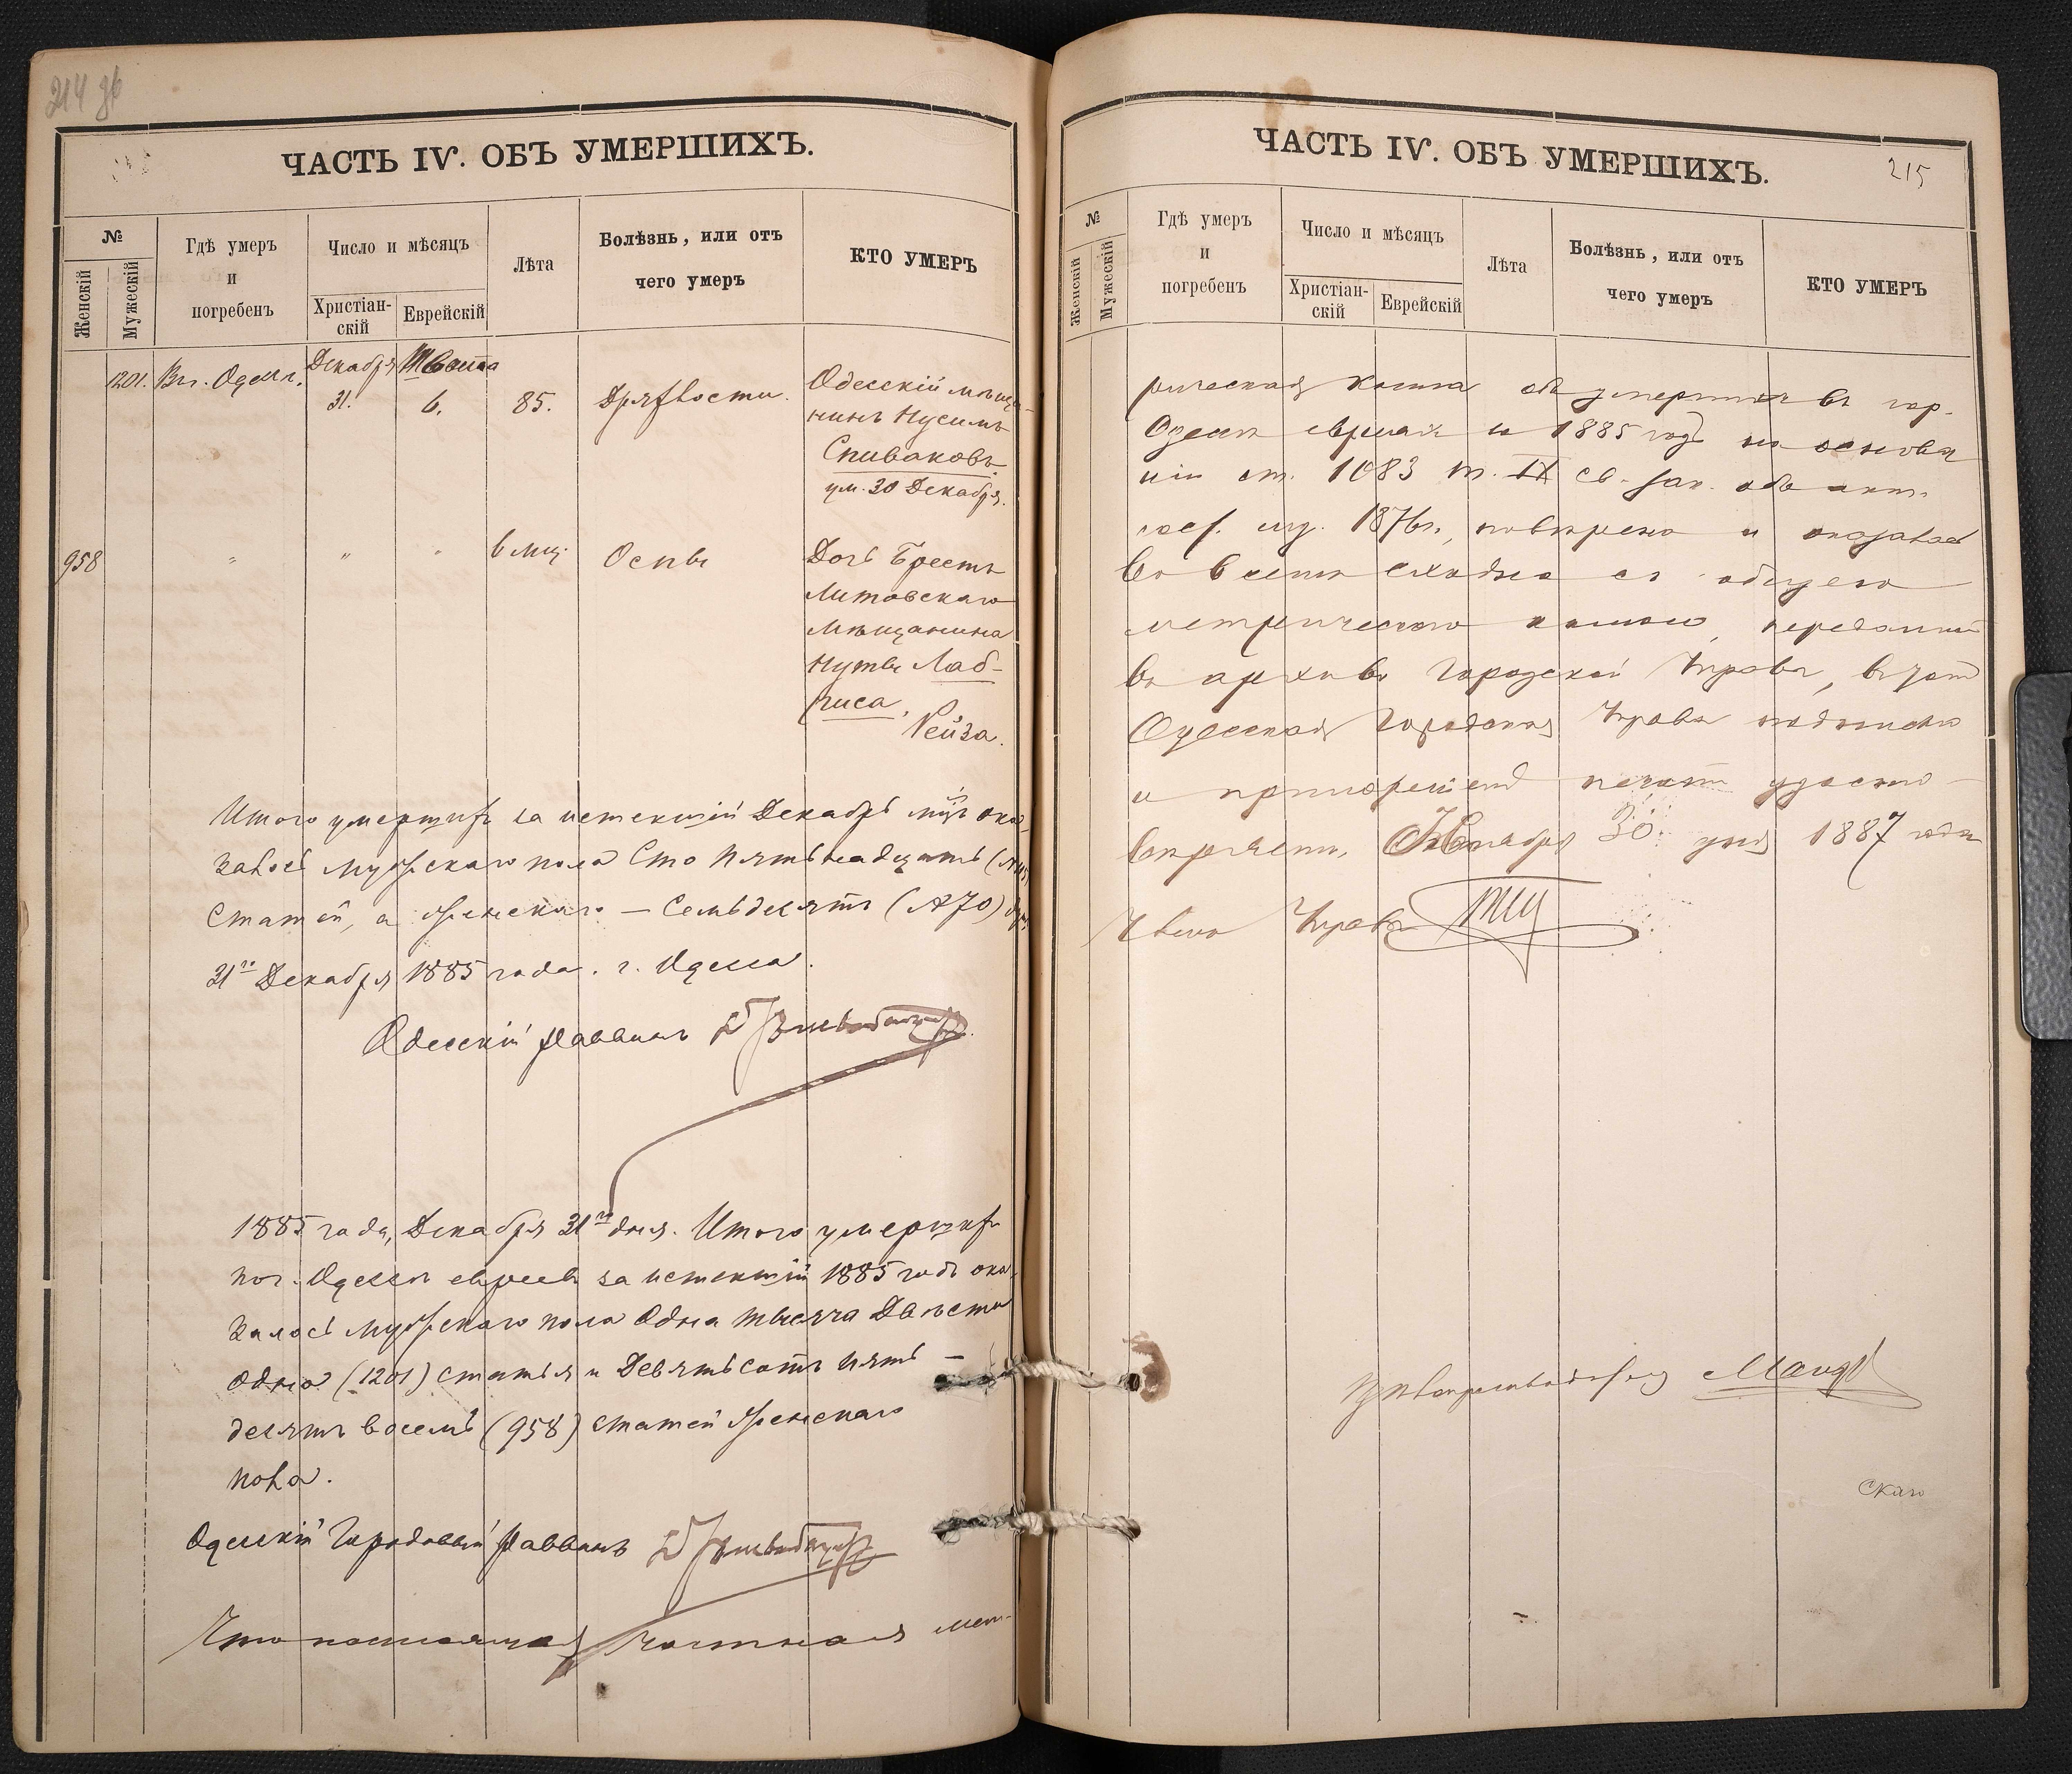 214 об
ЧАСТЬ IV. ОБЪ УМЕРШИХЪ.
№
Женскій
Мужескій
Гдѣ умеръ
и
погребенъ
Число и мѣсяцъ
Христіан-
скій
Еврейскій
Лѣта
Болѣзнь, или отъ
чего умеръ
КТО УМЕРЪ
1201. Вг. Одессѣ. Декабря 31. Тевета 6. 85. Дряхлости. Одесскій мѣща-
нинъ Нусимъ
Спиваковъ
ум. 30 Декабря.
958 " " " 6 мѣц. Оспы Дочь Брестъ
Литовскаго
Мѣщанина
Нуты Лаб-
риса,
Рейза.
Итого умершихъ за истекшій Декабрь мцъ ока-
залось мужескаго пола Сто Пятьнадцать
Статей, а женскаго — Семьдесятъ (№70)
31го Декабря 1885 года. г. Одесса.
Одесскій Раввинъ
1885 года, Декабря 31го дня. Итого умершихъ
по г. Одессѣ евреевъ за истекшій 1885 годъ ока-
залось мужескаго пола Одна тысяча Двѣсти
одна (1201) статья и Девятьсотъ пять-
десятъ восемь (958) статей женскаго
пола.
Одесскій Городовый Раввинъ
Что настоящая частная мет-
ЧАСТЬ IV. ОБЪ УМЕРШИХЪ.
215
№
Женскій
Мужескій
Гдѣ умеръ
и
погребенъ
Число и мѣсяцъ
Христіан-
скій
Еврейскій
Лѣта
Болѣзнь, или отъ
чего умеръ
КТО УМЕРЪ
рическая книга объ умершихъ въ гор.
Одессѣ евреяхъ за 1885 годъ на основа
ніи ст. 1083 т. IX св. зак. объ акт.
сост. изд. 1876 г., повѣрена и оказалась
во всемъ сходна съ общею
метрическою книгою, переданной
въ архивъ Городской Управы, въ чемъ
Одесская Городская Управа подписью
и приложеніемъ печати удосто-
вѣряетъ, Ноября 30 дня 1887 года
Членъ Управы
Дѣлопроизводитель
скаго